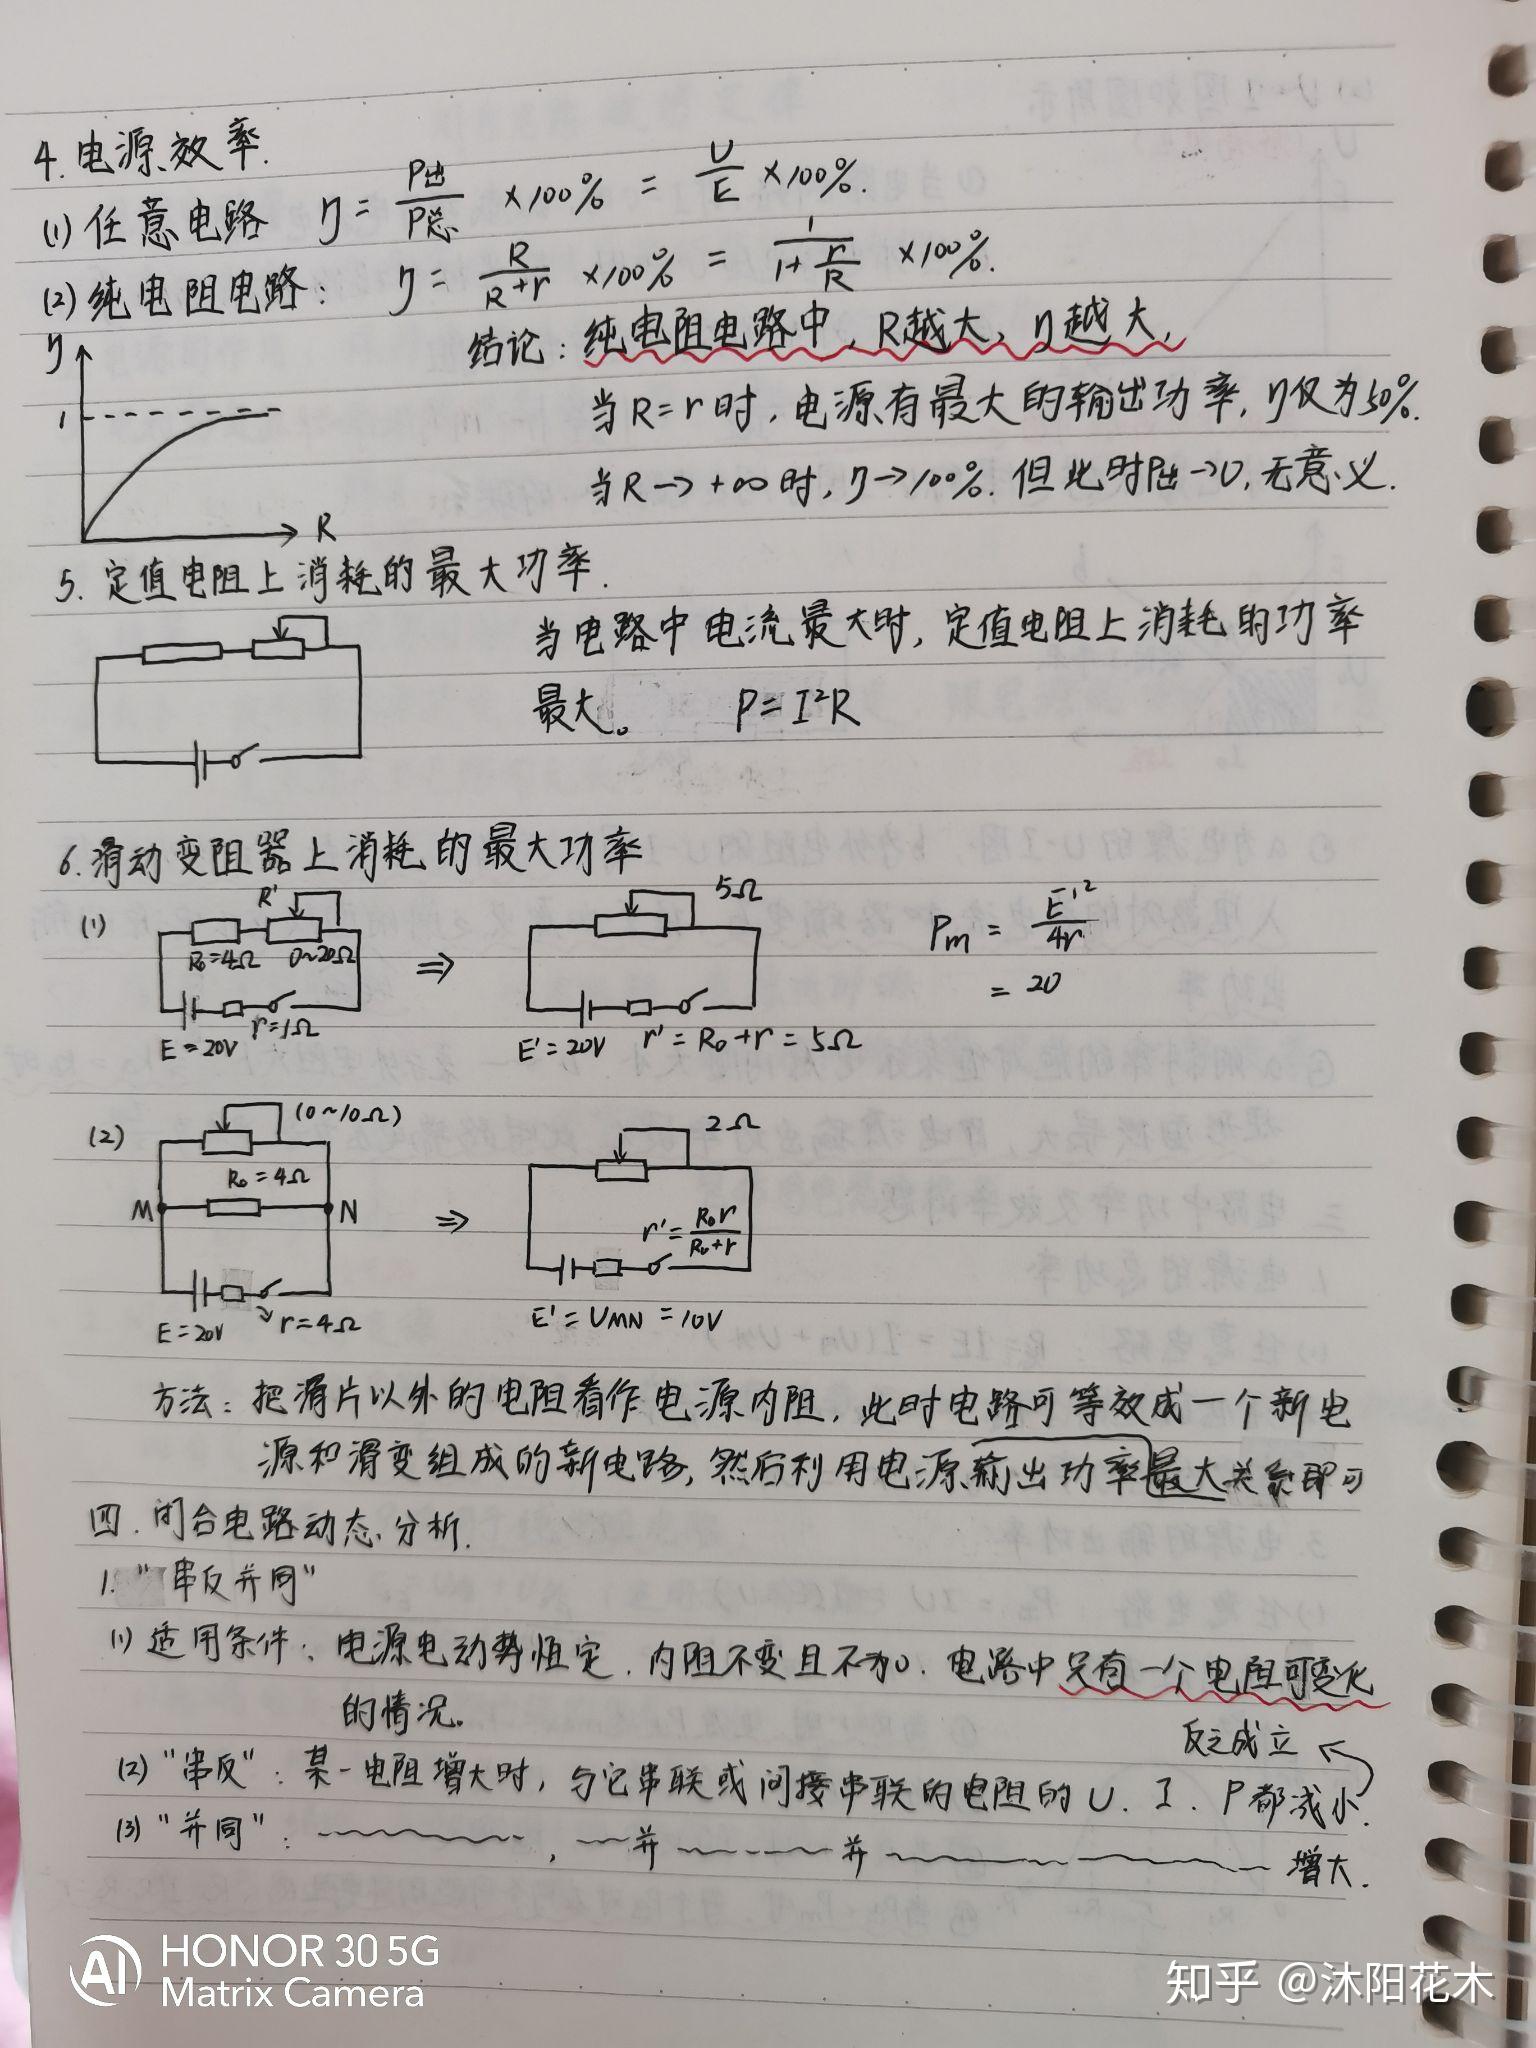 4.电源效率.
(1)任意电路 η = P出/P总 ×100% = U/E ×100%.
(2)纯电阻电路: η = R/(R+r) ×100% = 1/(1+r/R) ×100%.
结论:纯电阻电路中, R越大, η越大,
当R=r时,电源有最大的输出功率,η仅为50%.
当R→+∞时,η→100%.但此时P出→0,无意义.
η
1
R
5.定值电阻上消耗的最大功率.
当电路中电流最大时,定值电阻上消耗的功率
最大。 P=I²R
6.滑动变阻器上消耗的最大功率
(1) R' R₀=4Ω 0~20Ω E=20V r=1Ω
⇒ 5Ω E'=20V r'=R₀+r=5Ω
Pm = E'²/4r
= 20
(2) (0~10Ω) R₀=4Ω M N E=20V r=4Ω
⇒ 2Ω r'=R₀r/(R₀+r) E'=UMN=10V
方法:把滑片以外的电阻看作电源内阻,此时电路可等效成一个新电
源和滑变组成的新电路,然后利用电源输出功率最大关系即可
四.闭合电路动态分析.
1."串反并同"
(1)适用条件:电源电动势恒定.内阻不变且不为0.电路中只有一个电阻可变化
的情况。
反之成立
(2)"串反":某一电阻增大时,与它串联或间接串联的电阻的U.I.P都减小.
(3)"并同": , 并 并 增大.
AI HONOR 30 5G
Matrix Camera
知乎 @沐阳花木